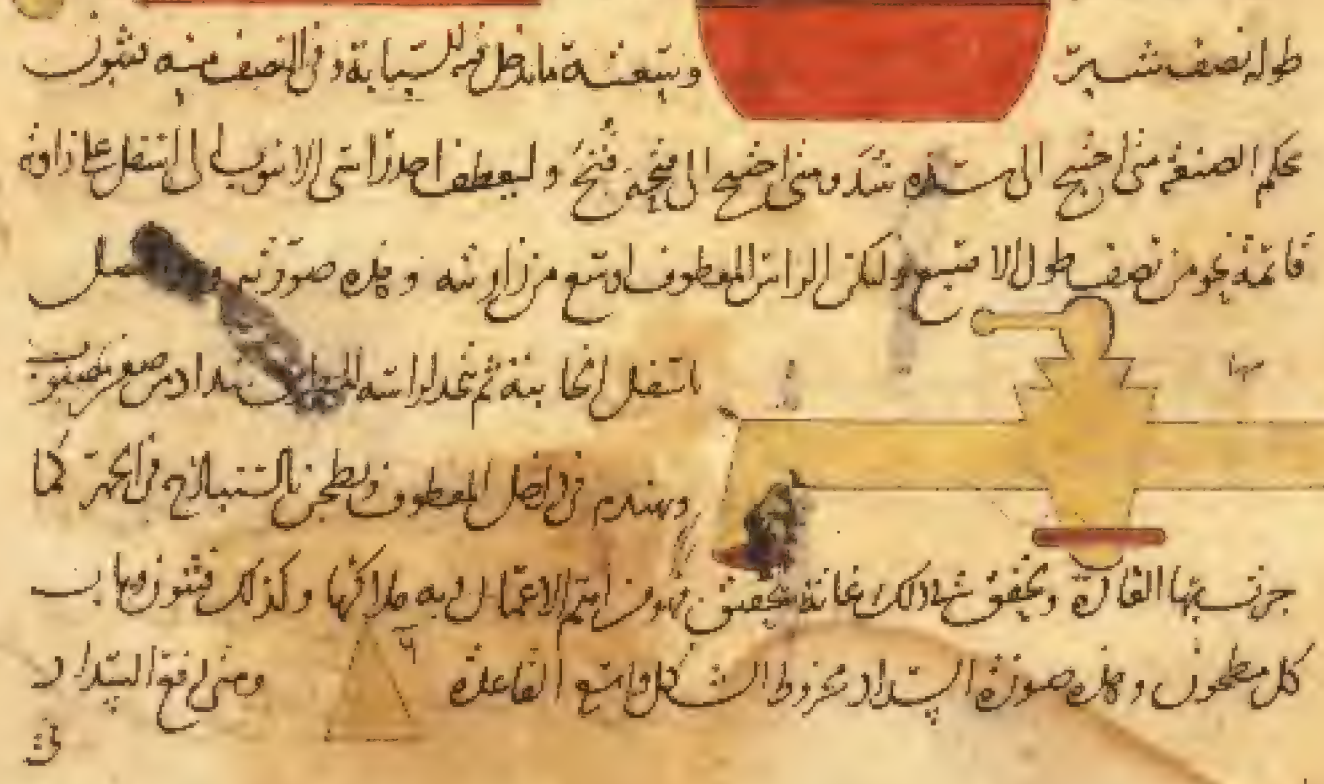 طوله نصف شبر وسعته ما يدخل فيه السبابة وفي النصف منه فثيون
محكم الصنعة متى احتيج الى سده سد ومتى احتيج الى فتحه فتح و ليعطف احد راسي الانبوب الى اسفل على زاوية
قائمة نحو من نصف طول الاصبع وليكن الراس المعطوف اوسع من زاويته وهذه صورته
باسفل الخابية ثم يتخذ لراسه سداد من صفر
ويهندم في داخل المعطوف ويطحن بالسنباذج في الجهر كما
جرت بها العادة ويحقق شد ذلك غاية التحقيق فهو من اتم الاعمال فيه ملاكها وكذلك فثيون وباب
كل مطحون وهذه صورة السداد مخروط الشكل واسع القاعدة ومتى رفع السداد
في